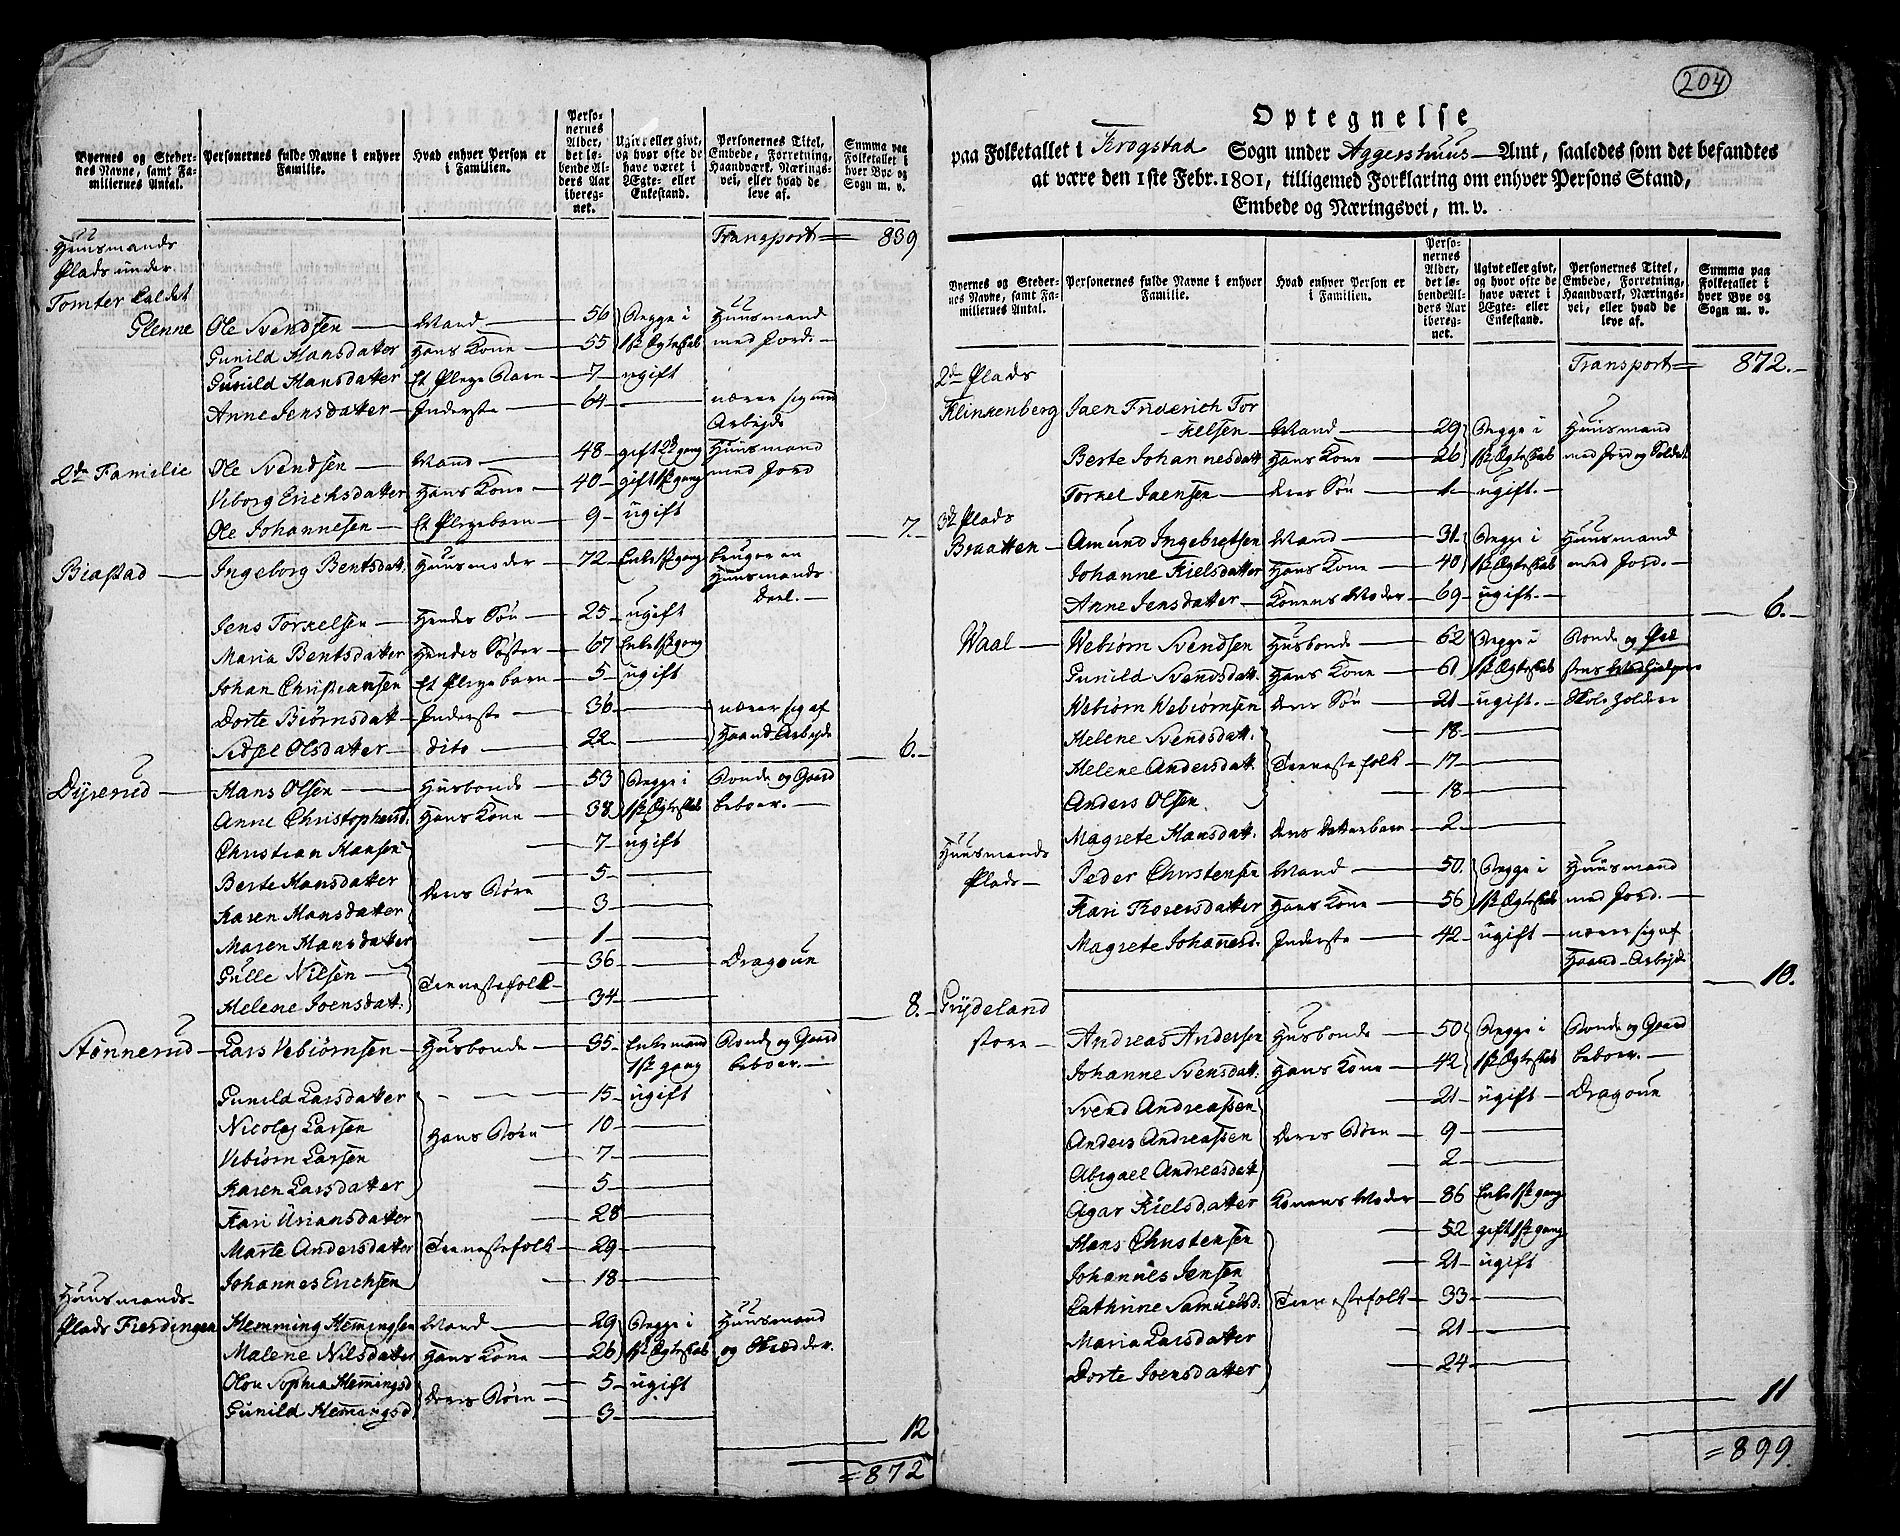 Byernes og Steder-
nes Navne, samt Fa-
miliernes Antal.
Personernes fulde Navne i enhver
Familie.
Hvad enhver Person er
i Familien.
Perso-
nernes
Alder,
det lø-
bende Al-
ders Aar
iberég-
net.
Ugivt eller givt,
og hvor ofte de
have været i
Ægte- eller
Enkestand.
Personernes Titel,
Embede, Forretning,
Haandværk, Nærings-
vei, eller hvad de
leve af.
Summa paa
Folketallet i
hver Bye og
Sogn m. v.
Transport = 839
Huusmands
Plads under
Tomter kaldet
Glenne Ole Svendsen — Mand — 56 Begge i Huusmand
Gunild Hansdatter Hans Kone — 55 1ste Ægteskab med Jord. —
Gunild Hansdatter Et Pleye Barn — 7 — ugift
Anne Jensdatter — Inderste — 64 — nærer sig med
Arbejde
2de Familie Ole Svendsen — Mand — 48 — gift 2de gang Huusmand
Viborg Erichsdatter Hans Kone — 40 — gift 1ste gang med Jord
Ole Johannesen — Et Pleyebarn — 9 — ugift — 7. —
Biastad — Ingeborg Bentsdatt. Huusmoder — 72 — Enke 1ste gang bruger en
Huusmands
Deel. —
Jens Torkelsen — Hendes Søn — 25 — ugift
Maria Bentsdatter Hendes Søster — 67 Enke 1ste gang
Johan Christiansen Et Pleyebarn — 5 — ugift
Dorte Biørnsdatt — Inderste — 36 — nærer sig af
Sidsel Olsdatter — dito — 22 — Haand-Arbejde
6. —
Dyserud — Hans Olsen — Husbonde — 53 Begge i Bonde og Gaard
Anne Christophersd. Hans Kone — 38 1ste Ægteskab beboer. —
Christian Hansen — 7 — ugift
Berte Hansdatter — 5 —
Karen Hansdatter Deres Børn — 3 —
Maren Hansdatter — 1 —
Gulle Nilsen — 36 — Dragoun
Helene Joensdatt. Tienestefolk — 34 — 8. —
Stønnerud — Lars Vebiørnsen — Husbonde — 35 — Enkemand Bonde og Gaard
1ste gang beboer. —
Gunild Larsdatter — 15 — ugift
Nicolaj Larsen Hans Børn — 10 —
Vebiørn Larsen — 7 —
Karen Larsdatter — 5 —
Kari Uriansdatter — 28
Marte Andersdatter Tienestefolk — 29 —
Johannes Erichsen — 18 —
Huusmands-
Plads Fierdingen Hemming Hemingsen Mand — 29 Begge i Huusmand
Malene Nilsdatter Hans Kone — 26 1ste Ægteskab og Skrædder.
Olou Sophia Hemmingsd Deres Børn — 5 — ugift
Gunild Hemmingsd — 3 —
12
= 872
204
Optegnelse
paa Folketallet i Krogstad Sogn under Aggershuus — Amt, saaledes som det befandtes
at være den 1ste Febr. 1801, tilligemed Forklaring om enhver Persons Stand,
Embede og Næringsvei, m. v.
Byernes og Steder-
nes Navne, samt Fa-
miliernes Antal.
Personernes fulde Navne i enhver
Familie.
Hvad enhver Person er
i Familien.
Perso-
nernes
Alder,
det lø-
bende Al-
ders Aar
iberég-
net.
Ugivt eller givt,
og hvor ofte de
have været i
Ægte- eller
Enkestand.
Personernes Titel,
Embede, Forretning,
Haandværk, Nærings-
vei, eller hvad de
leve af.
Summa paa
Folketallet i
hver Bye og
Sogn m. v.
Transport = 872. —
2de Plads
Klinkenberg Jaen Friderich Tor
kelsen — Mand — 29 Begge i Huusmand
Berte Johannesdatt Hans Kone — 26 1ste Ægteskab med Jord og Soldat
Torkel Jaensen — Deres Søn — 1 — ugift. —
3de Plads
Braatten — Amund Ingebretsen Mand — 31 Begge i Huusmand
Johanne Kielsdatter Hans Kone — 40 1ste Ægteskab med Jord. —
Anne Jensdatter — Konens Moder — 69 — ugift. —
6. —
Waal — Webiørn Svendsen Husbonde — 62 Begge i Bonde og Præ
Gunild Svendsdatt. Hans Kone — 61 1ste Ægteskab stens Medhielper
Webiørn Webiørnsen Deres Søn — 21 — ugift. — Skoleholder
Helene Svendsdatt. — 18 —
Helene Andersdatt. Tienestefolk — 17 —
Anders Olsen. — 18 —
Magrete Hansdatt. Deres Datterbarn — 2 —
Huusmands
Plads — Peder Christensen Mand — 50. Begge i Huusmand
Kari Torersdatter Hans Kone — 56 1ste Ægteskab med Jord. —
Magrete Johannesd. Inderste — 42 — ugift — nærer sig af
Haand-Arbejde
10.
Grydeland
store — Andreas Andersen Husbonde — 50 Begge i Bonde og Gaard
Johanne Svensdatt. Hans Kone — 42 1ste Ægteskab beboer. —
Svend Andreassen — 21 — ugift — Dragoun
Anders Andreassen Deres Børn — 9 —
Abigael Andreasdatt — 2 —
Agar Kielsdatter Konens Moder — 86 Enke 1ste gang
Hans Christensen — 52 gift 1ste gang
Johannes Jensen — 21 — ugift
Cathrine Samuelsd. Tienestefolk — 33 —
Maria Larsdatter — 21 —
Dorte Joensdatter — 24 —
11
= 899